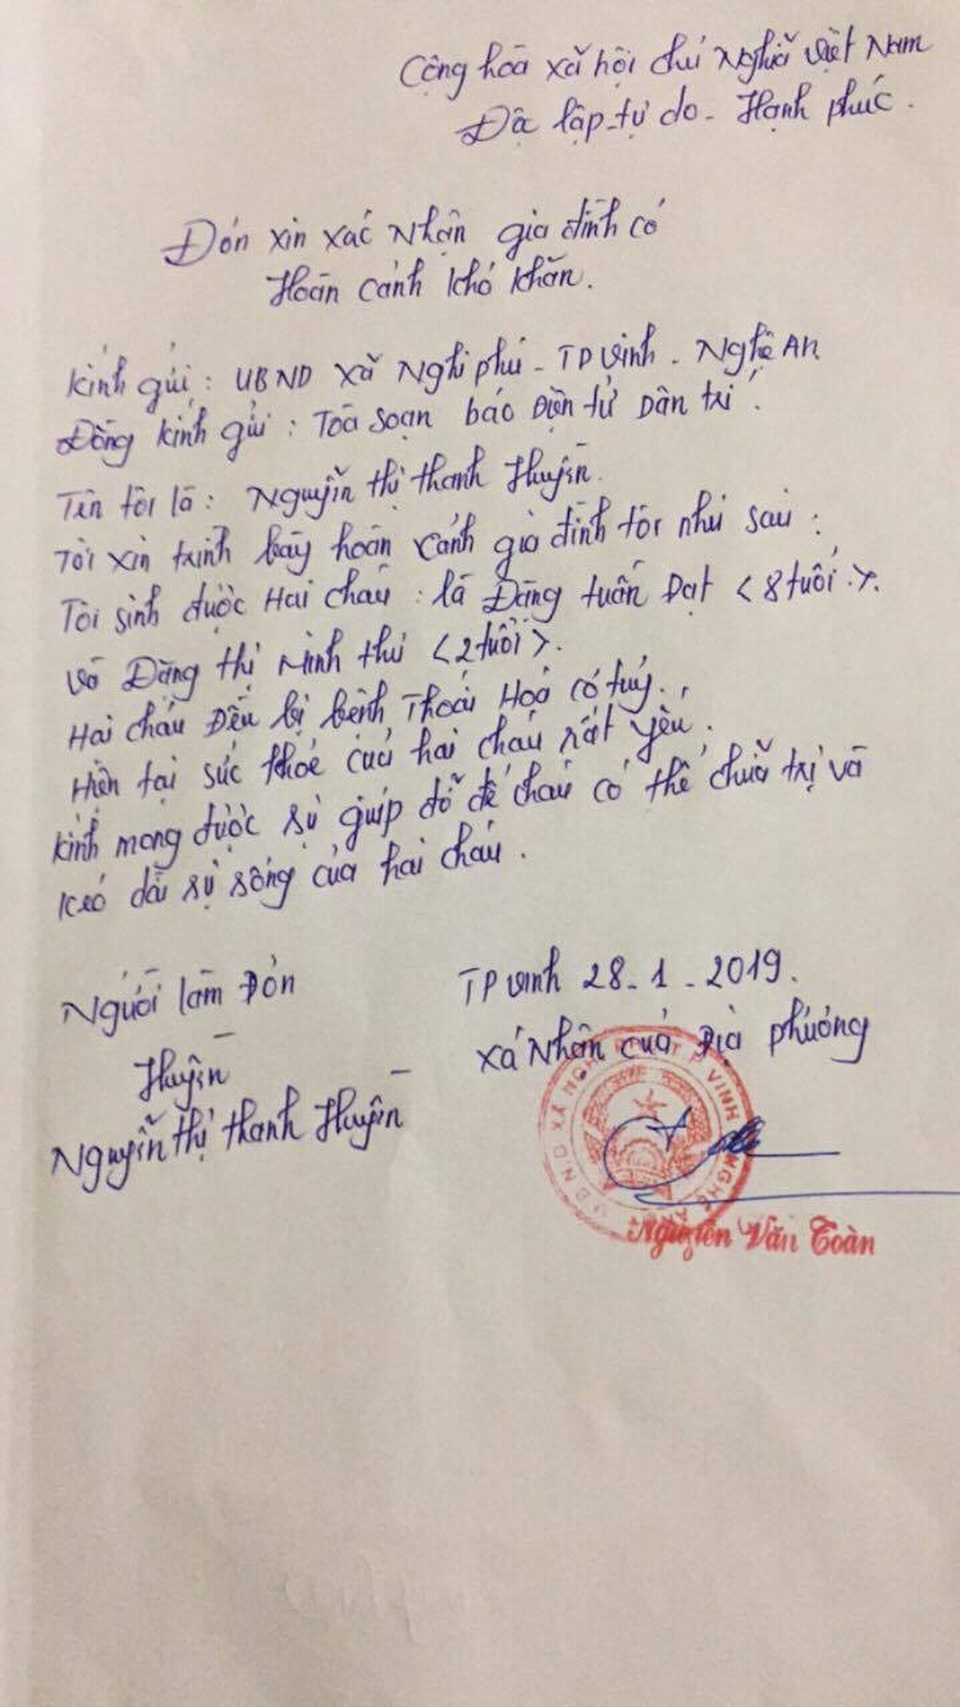 Cộng hòa xã hội chủ Nghĩa Việt Nam
Độc lập - tự do - Hạnh phúc.
Đơn xin xác Nhận gia đình có
Hoàn cảnh khó khăn.
Kính gửi: UBND xã Nghi phú - TP Vinh - Nghệ An
Đồng kính gửi: Tòa soạn báo Điện tử Dân trí.
Tên tôi là: Nguyễn thị thanh Huyền
Tôi xin trình bày hoàn cảnh gia đình tôi như sau:
Tôi sinh được Hai cháu: là Đặng tuấn Đạt <8 tuổi>.
và Đặng thị Minh thư <2 tuổi>.
Hai cháu Đều bị bệnh Thoái Hoá cơ tuỷ.
Hiện tại sức khoẻ của hai cháu rất yếu.
kính mong được sự giúp đỡ để cháu có thể chữa trị và
kéo dài sự sống của hai cháu.
Người làm Đơn
TP Vinh 28-1-2019.
Xá Nhận của Địa phương
Huyền
Nguyễn thị thanh Huyền
U.B.N.D XÃ NGHI PHÚ T.P VINH
Nguyễn Văn Toàn